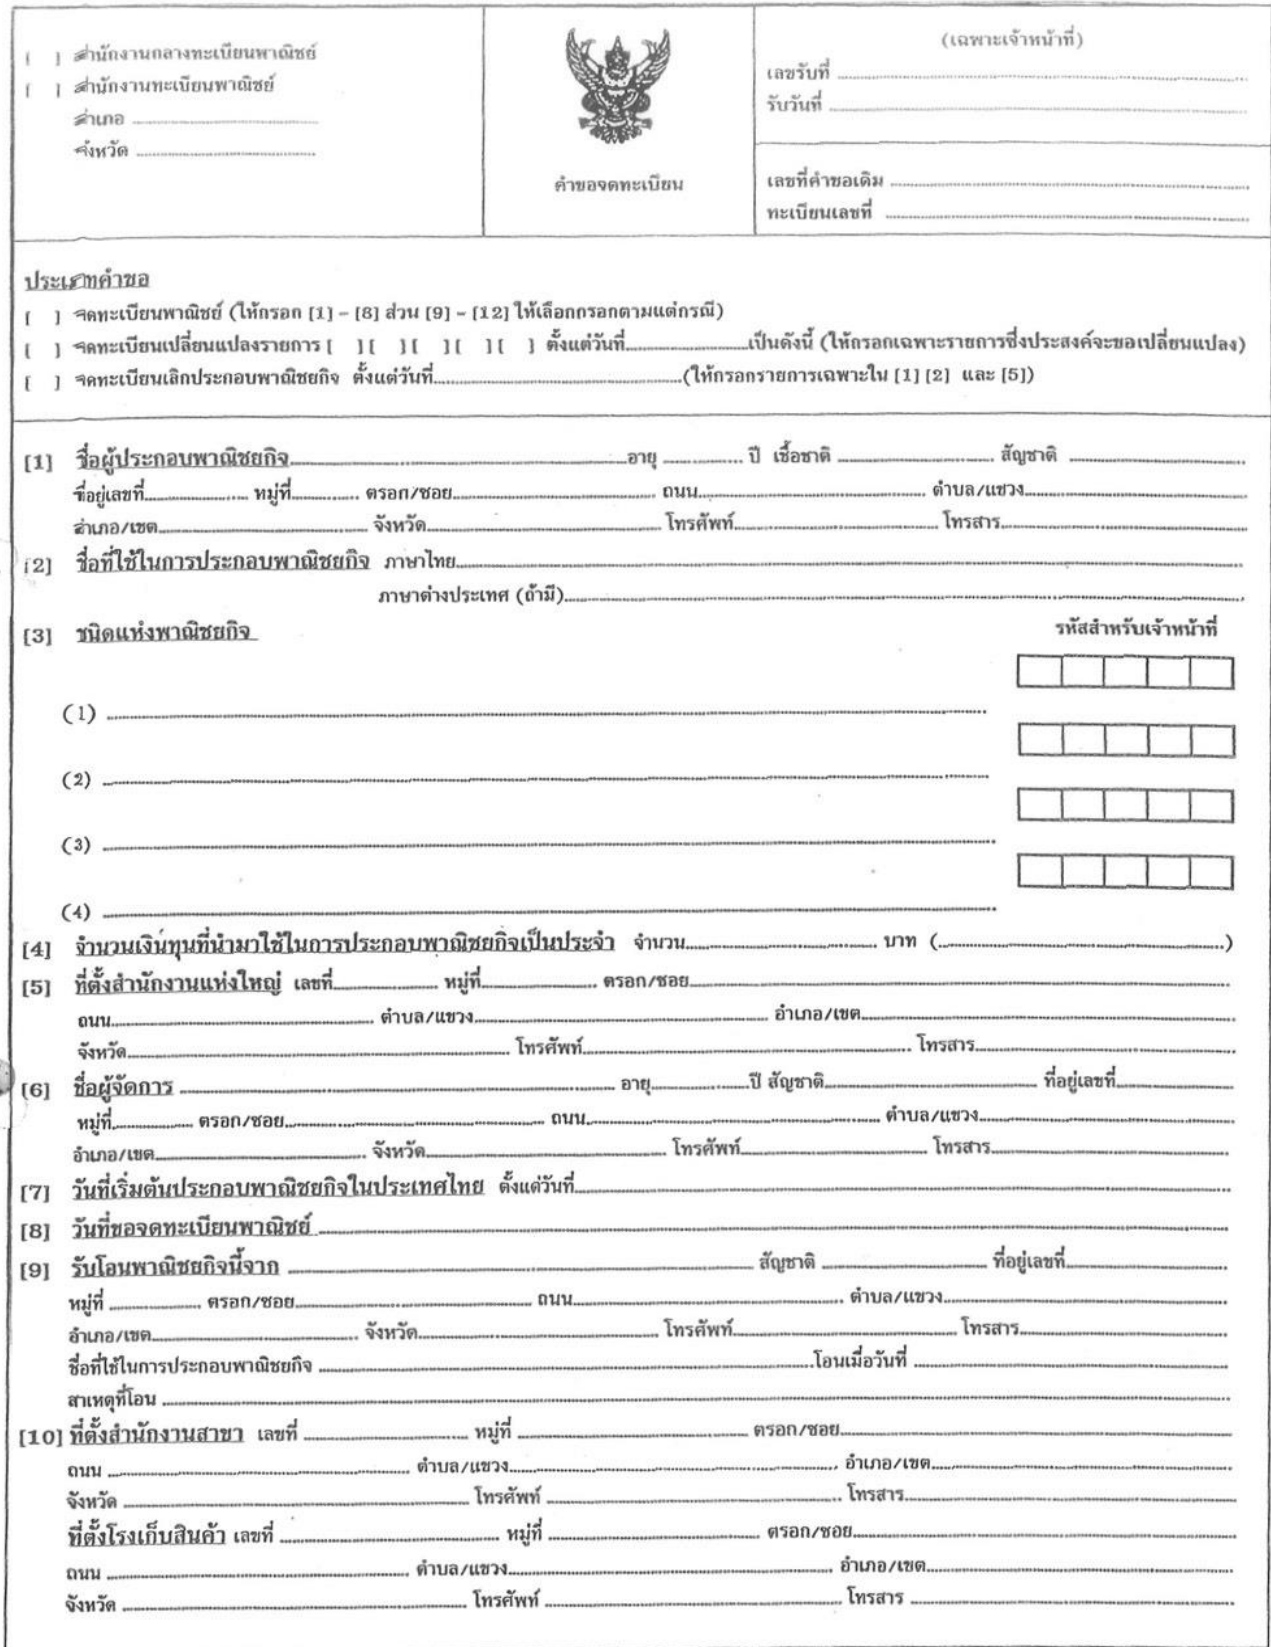 [ ] สำนักงานกลางทะเบียนพาณิชย์
[ ] สำนักงานทะเบียนพาณิชย์
อำเภอ ..............................
จังหวัด ..............................
คำขอจดทะเบียน
(เฉพาะเจ้าหน้าที่)
เลขรับที่ ..............................
รับวันที่ ..............................
เลขที่คำขอเดิม ..............................
ทะเบียนเลขที่ ..............................
ประเภทคำขอ
[ ] จดทะเบียนพาณิชย์ (ให้กรอก [1] - [8] ส่วน [9] - [12] ให้เลือกกรอกตามแต่กรณี)
[ ] จดทะเบียนเปลี่ยนแปลงรายการ [ ] [ ] [ ] [ ] [ ] ตั้งแต่วันที่....................เป็นดังนี้ (ให้กรอกเฉพาะรายการซึ่งประสงค์จะขอเปลี่ยนแปลง)
[ ] จดทะเบียนเลิกประกอบพาณิชยกิจ ตั้งแต่วันที่..............................(ให้กรอกรายการเฉพาะใน [1] [2] และ [5])
[1] ชื่อผู้ประกอบพาณิชยกิจ..............................อายุ .............. ปี เชื้อชาติ .................... สัญชาติ ....................
ที่อยู่เลขที่.............. หมู่ที่.............. ตรอก/ซอย.................... ถนน.................... ตำบล/แขวง....................
อำเภอ/เขต.................... จังหวัด.................... โทรศัพท์.................... โทรสาร....................
[2] ชื่อที่ใช้ในการประกอบพาณิชยกิจ ภาษาไทย..............................
ภาษาต่างประเทศ (ถ้ามี)..............................
[3] ชนิดแห่งพาณิชยกิจ
รหัสสำหรับเจ้าหน้าที่
(1) ..............................
(2) ..............................
(3) ..............................
(4) ..............................
[4] จำนวนเงินทุนที่นำมาใช้ในการประกอบพาณิชยกิจเป็นประจำ จำนวน.................... บาท (..............................)
[5] ที่ตั้งสำนักงานแห่งใหญ่ เลขที่.............. หมู่ที่.............. ตรอก/ซอย..............................
ถนน.................... ตำบล/แขวง.................... อำเภอ/เขต....................
จังหวัด.................... โทรศัพท์.................... โทรสาร....................
[6] ชื่อผู้จัดการ .............................. อายุ..............ปี สัญชาติ.................... ที่อยู่เลขที่..............
หมู่ที่.............. ตรอก/ซอย.................... ถนน.................... ตำบล/แขวง....................
อำเภอ/เขต.................... จังหวัด.................... โทรศัพท์.................... โทรสาร....................
[7] วันที่เริ่มต้นประกอบพาณิชยกิจในประเทศไทย ตั้งแต่วันที่..............................
[8] วันที่ขอจดทะเบียนพาณิชย์ ..............................
[9] รับโอนพาณิชยกิจนี้จาก .............................. สัญชาติ .................... ที่อยู่เลขที่....................
หมู่ที่ .............. ตรอก/ซอย.................... ถนน.................... ตำบล/แขวง....................
อำเภอ/เขต.................... จังหวัด.................... โทรศัพท์.................... โทรสาร....................
ชื่อที่ใช้ในการประกอบพาณิชยกิจ ..............................โอนเมื่อวันที่ ..............................
สาเหตุที่โอน ..............................
[10] ที่ตั้งสำนักงานสาขา เลขที่ .................... หมู่ที่ .................... ตรอก/ซอย....................
ถนน .................... ตำบล/แขวง.................... อำเภอ/เขต....................
จังหวัด .................... โทรศัพท์ .................... โทรสาร....................
ที่ตั้งโรงเก็บสินค้า เลขที่ .................... หมู่ที่ .................... ตรอก/ซอย....................
ถนน .................... ตำบล/แขวง.................... อำเภอ/เขต....................
จังหวัด .................... โทรศัพท์ .................... โทรสาร ....................